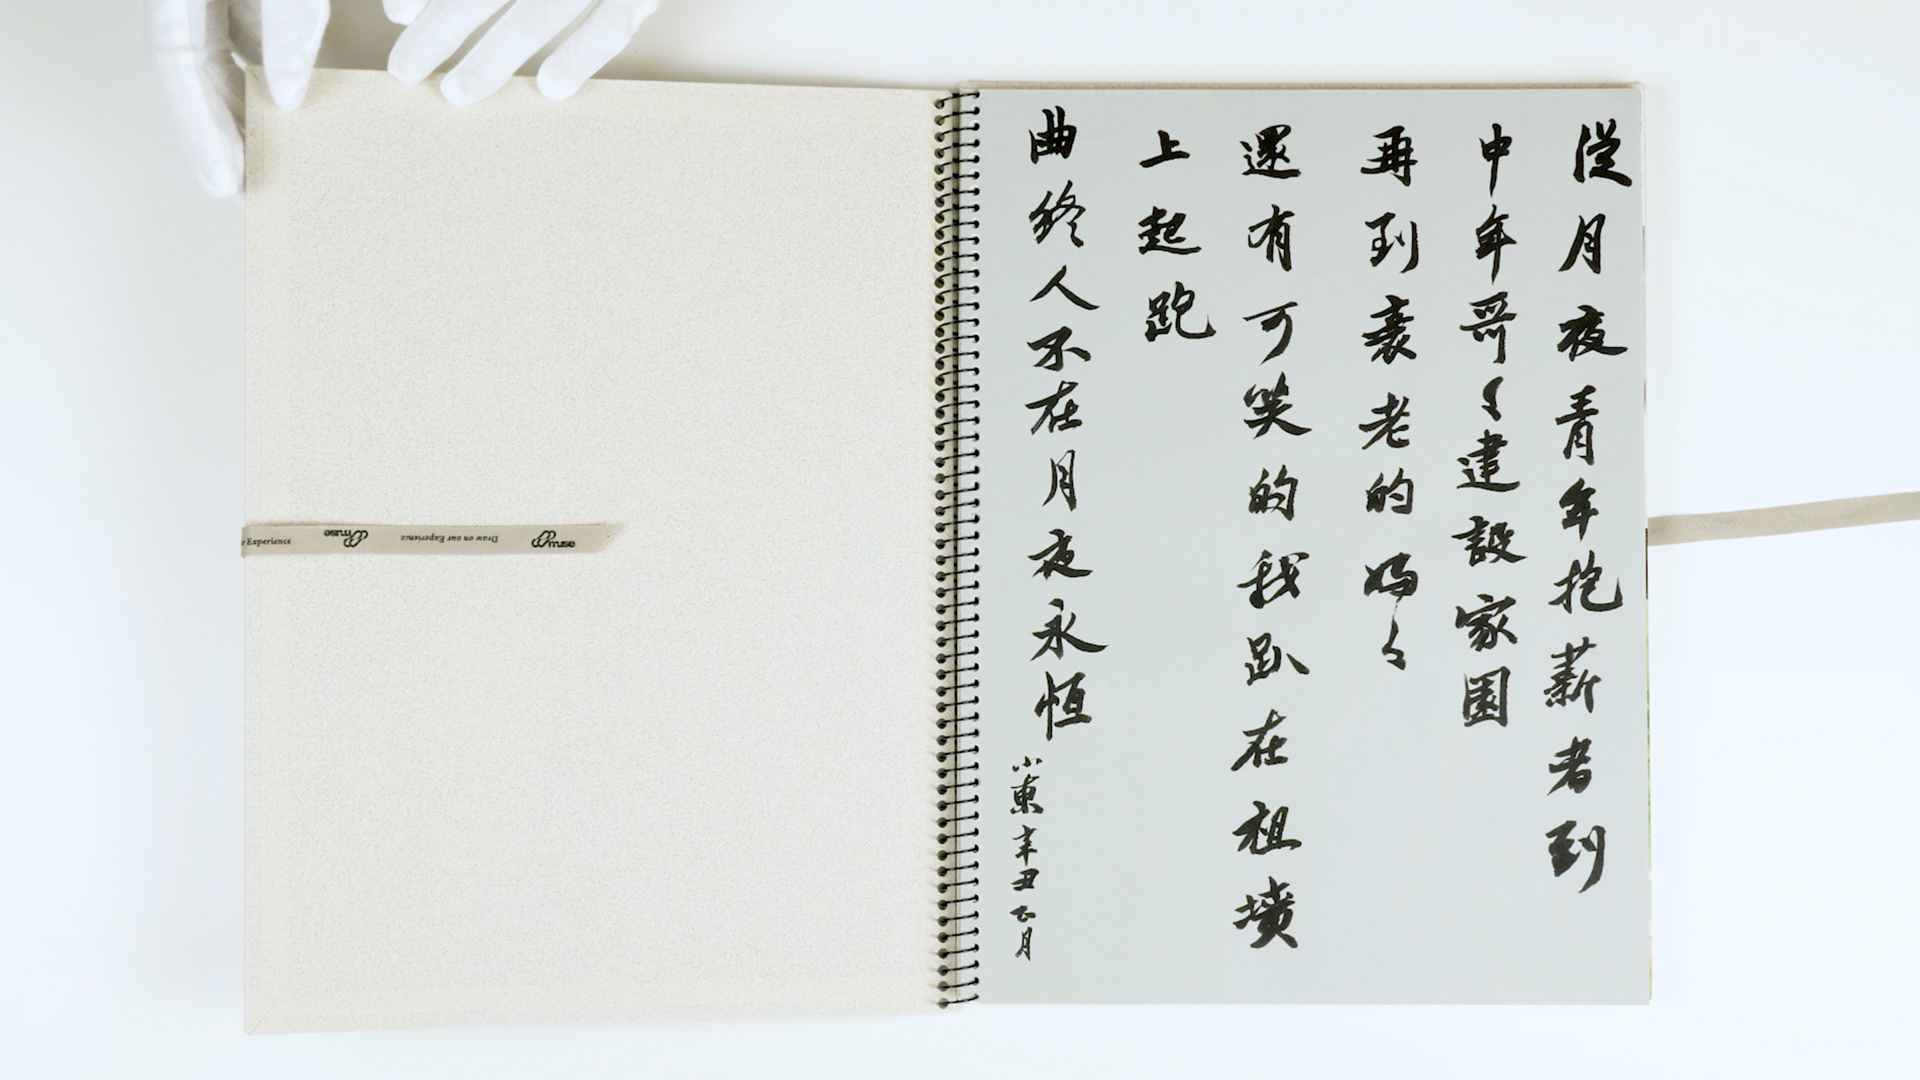 從月夜青年抱薪者到
中年哥々建設家園
再到衰老的媽々
還有可笑的我趴在祖墳
上起跑
曲終人不在月夜永恒
小東辛丑正月
Experience muse Draw on our Experience muse